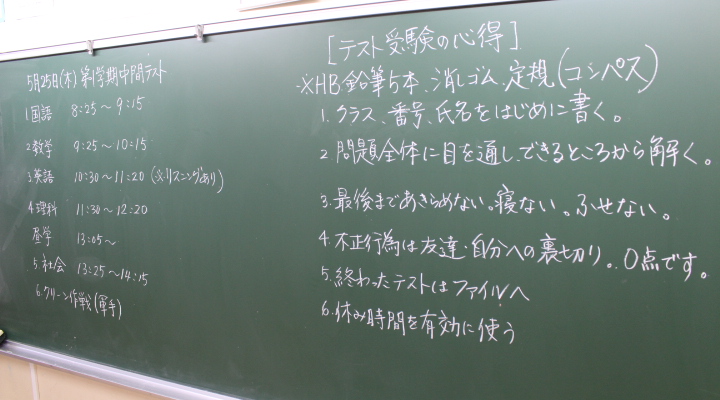 5月25日(木) 第1学期中間テスト
1 国語 8:25～9:15
2 数学 9:25～10:15
3 英語 10:30～11:20 (※リスニングあり)
4 理科 11:30～12:20
昼学 13:05～
5 社会 13:25～14:15
6 クリーン作戦(軍手)
[テスト受験の心得]
※HB鉛筆5本、消しゴム、定規(コンパス)
1. クラス、番号、氏名をはじめに書く。
2. 問題全体に目を通し、できるところから解く。
3. 最後まであきらめない。寝ない。ふせない。
4. 不正行為は友達・自分への裏切り。0点です。
5. 終わったテストはファイルへ
6. 休み時間を有効に使う